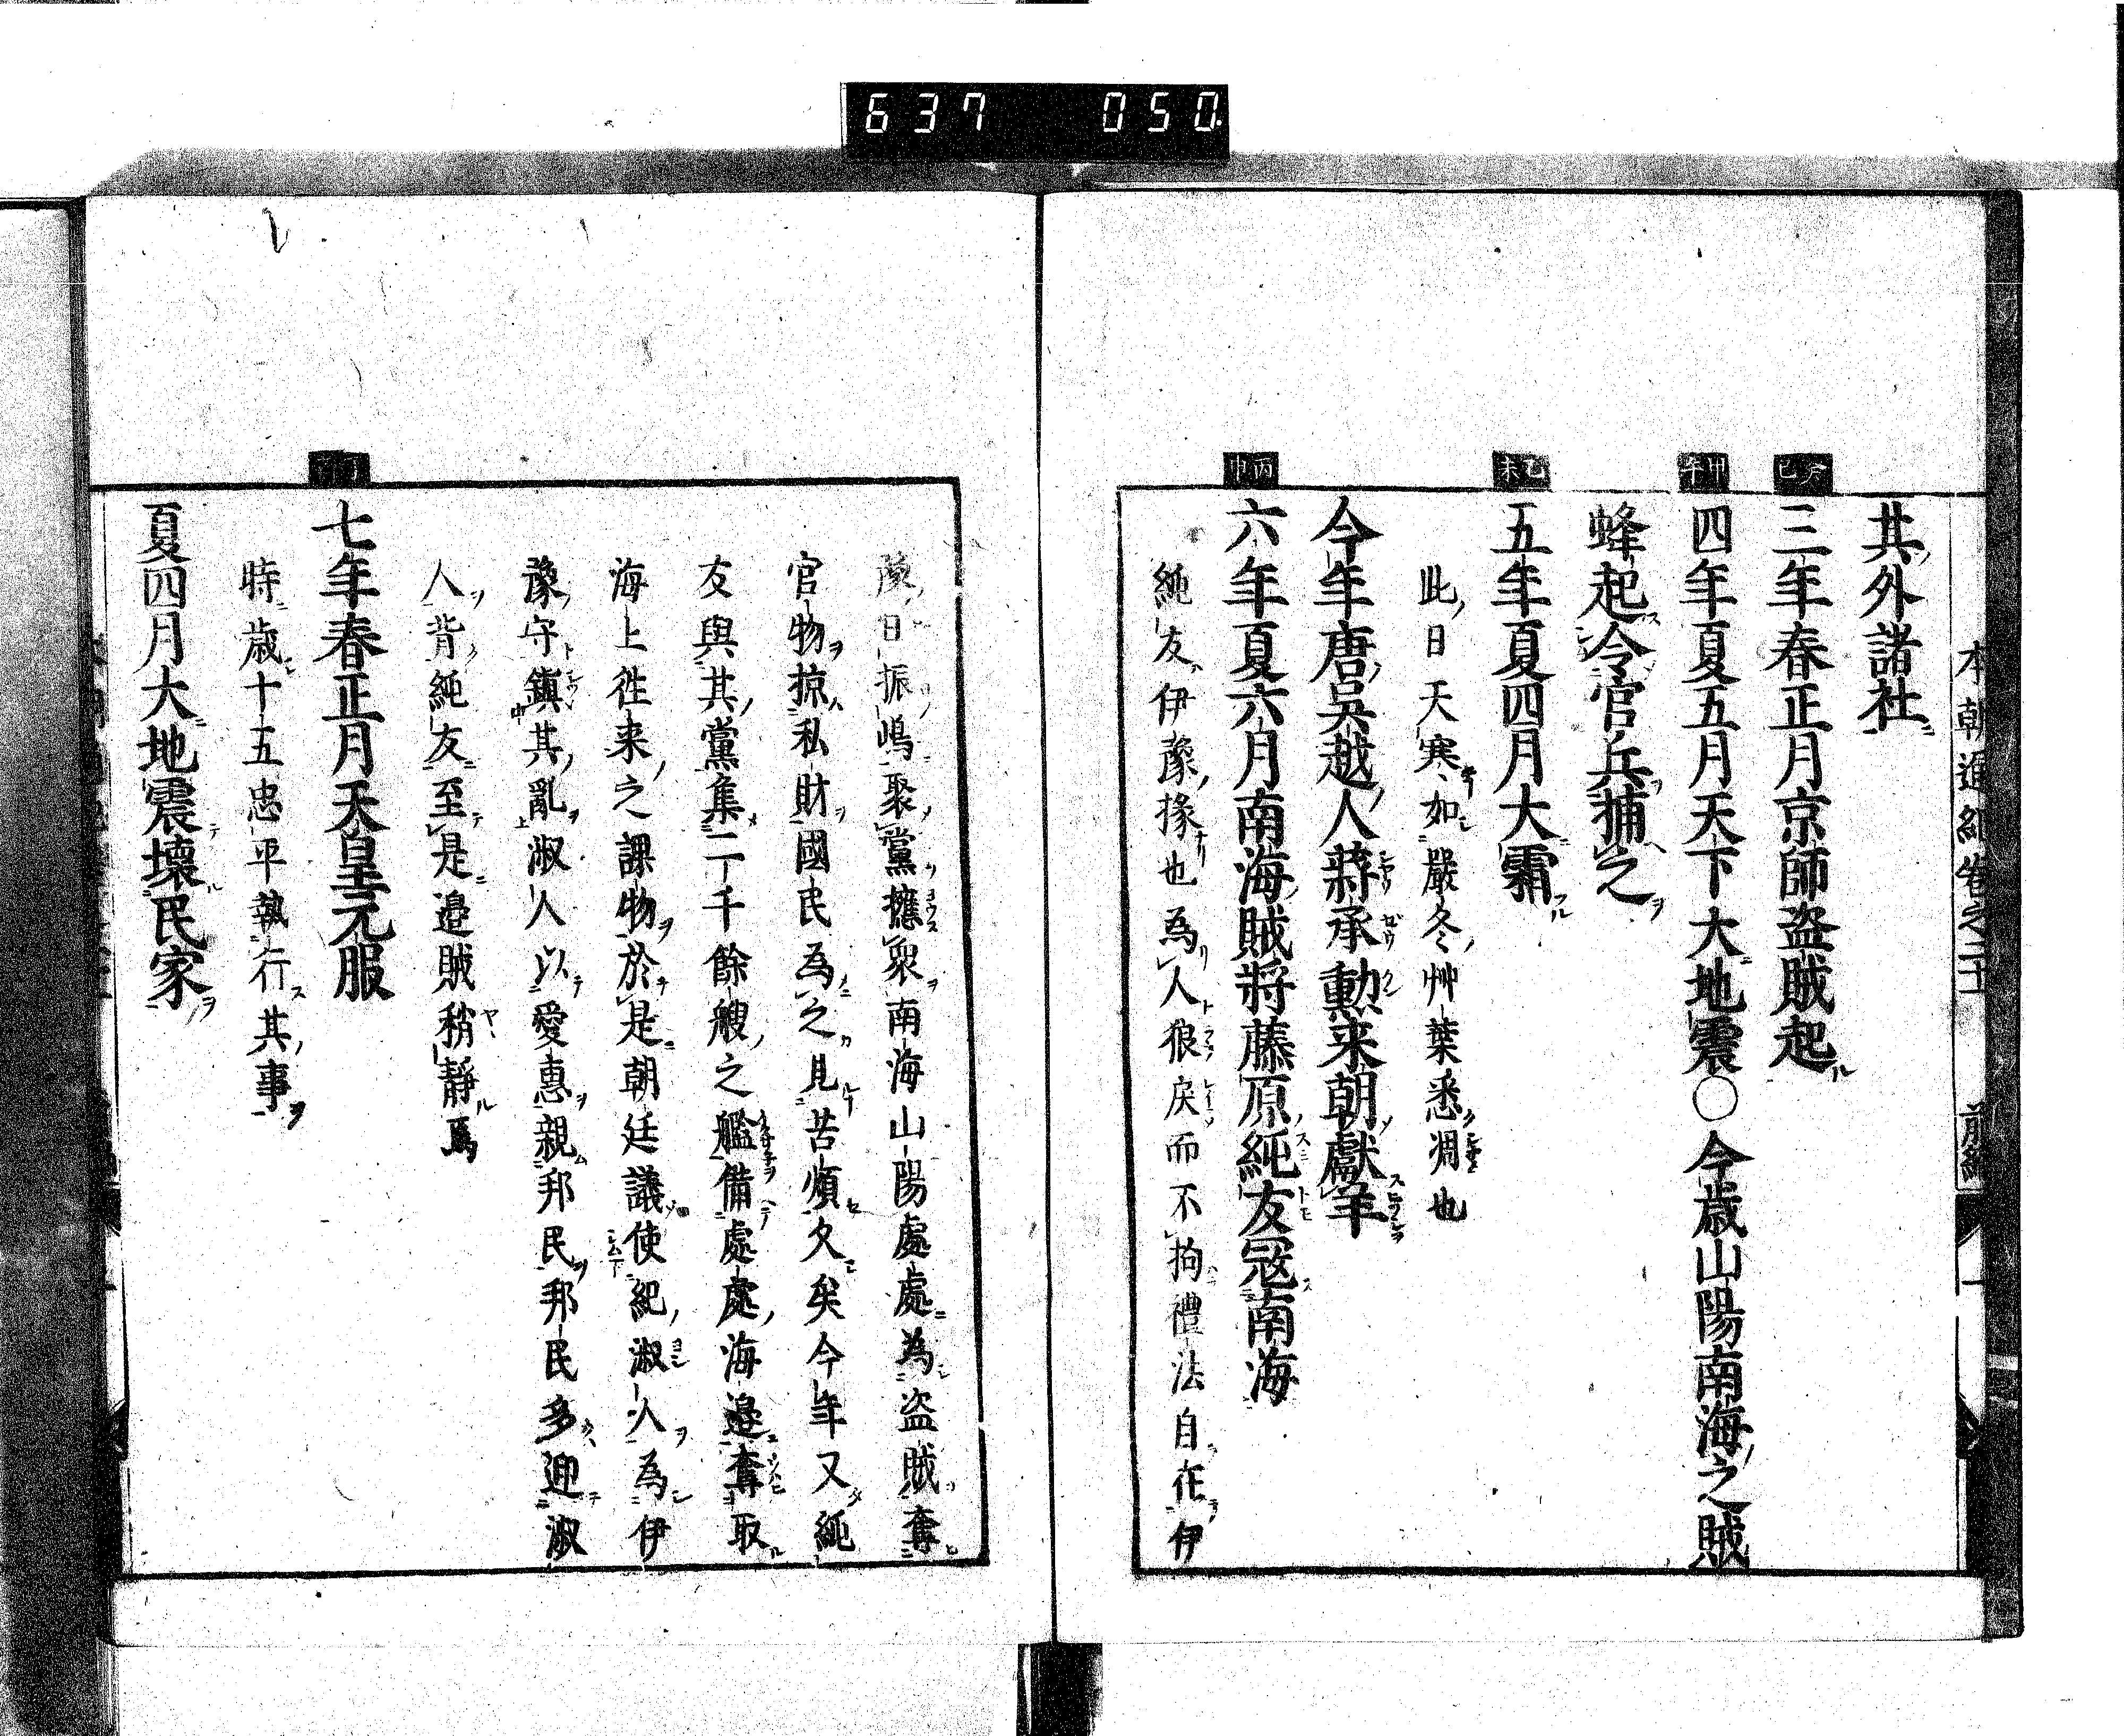 637 050
本朝通紀卷之二十 前編
其外諸社
癸巳
三年春正月京師盗賊起
甲午
四年夏五月天下大地震○今歳山陽南海之賊
蜂起令官兵捕之
乙未
五年夏四月大霜
此日天寒如嚴冬艸葉悉凋也
今年唐吳越人蒋承勳来朝獻羊
丙申
六年夏六月南海賊將藤原純友冦南海
純友伊豫掾也為人狼戻而不拘禮法自在伊
豫日振嶋聚黨擁衆南海山陽處處為盗賊奪
官物掠私財國民為之見苦煩久矣今年又純
友與其黨集二千餘艘之艦備處處海邉奪取
海上徃来之課物於是朝廷議使紀淑人為伊
豫守鎮其亂淑人以愛惠親邦民邦民多迎淑
人背純友至是邉賊稍靜焉
七年春正月天皇元服
時歳十五忠平執行其事
夏四月大地震壊民家